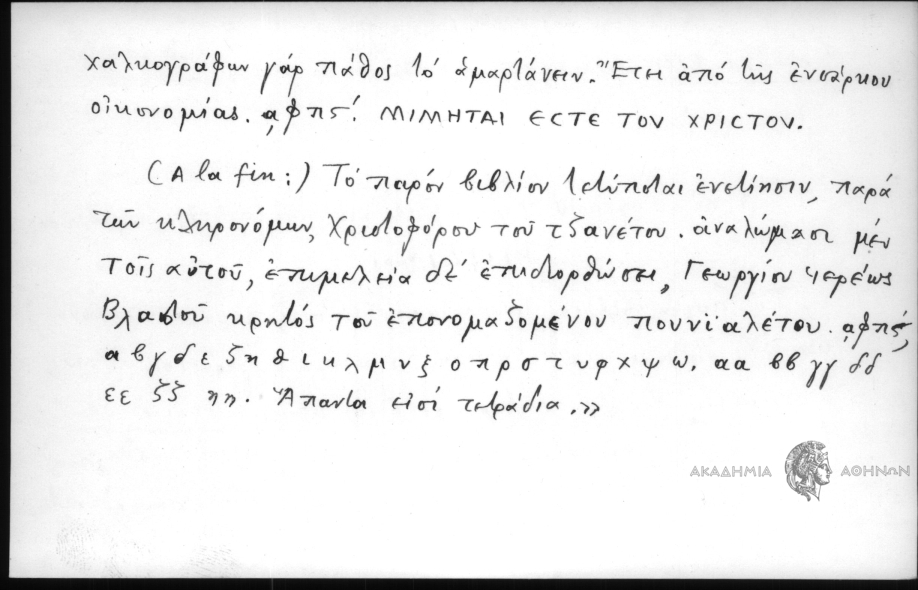 χαλκογράφων γάρ πάθος τό ἁμαρτάνειν. Ἔτει ἀπό τῆς ἐνσάρκου
οἰκονομίας. ͵αφπϛ´. ΜΙΜΗΤΑΙ ΕϹΤΕ ΤΟΥ ΧΡΙϹΤΟΥ.
(A la fin:) Τό παρόν βιβλίον τετύπωται ἐνετίησιν, παρά
τῶν κληρονόμων, Χριστοφόρου τοῦ τζανέτου. ἀναλώμασι μέν
τοῖς αὐτοῦ, ἐπιμελεία δέ ἐπιδιορθώσει, Γεωργίου ἱερέως
Βλαστοῦ κρητός τοῦ ἐπονομαζομένου πουνϊαλέτου. ͵αφπϛ,
α β γ δ ε ζ η θ ι κ λ μ ν ξ ο π ρ σ τ υ φ χ ψ ω. αα ββ γγ δδ
εε ζζ ηη. Ἅπαντα εἰσί τετράδια.»
ΑΚΑΔΗΜΙΑ ΑΘΗΝΩΝ